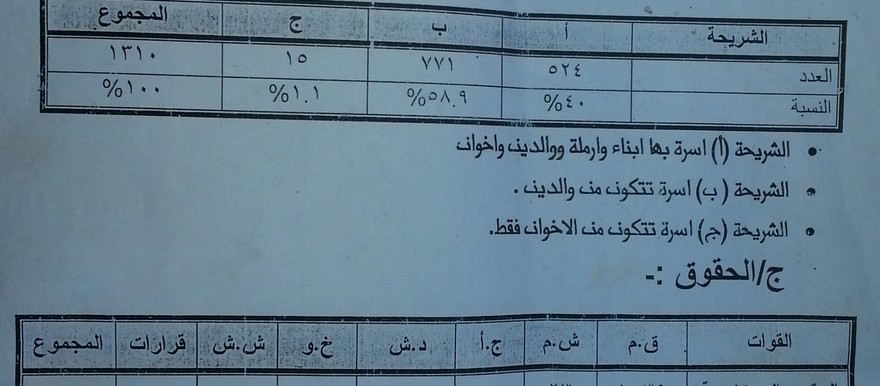 الشريحة أ ب ج المجموع
العدد ٥٢٤ ٧٧١ ١٥ ١٣١٠
النسبة %٤٠ %٥٨.٩ %١.١ %١٠٠
• الشريحة (أ) اسرة بها ابناء وارملة ووالدين واخوان
• الشريحة (ب) اسرة تتكون من والدين .
• الشريحة (ج) اسرة تتكون من الاخوان فقط.
ج/الحقوق :-
القوات ق.م ش.م ج.أ د.ش خ.و ش.ش قرارات المجموع